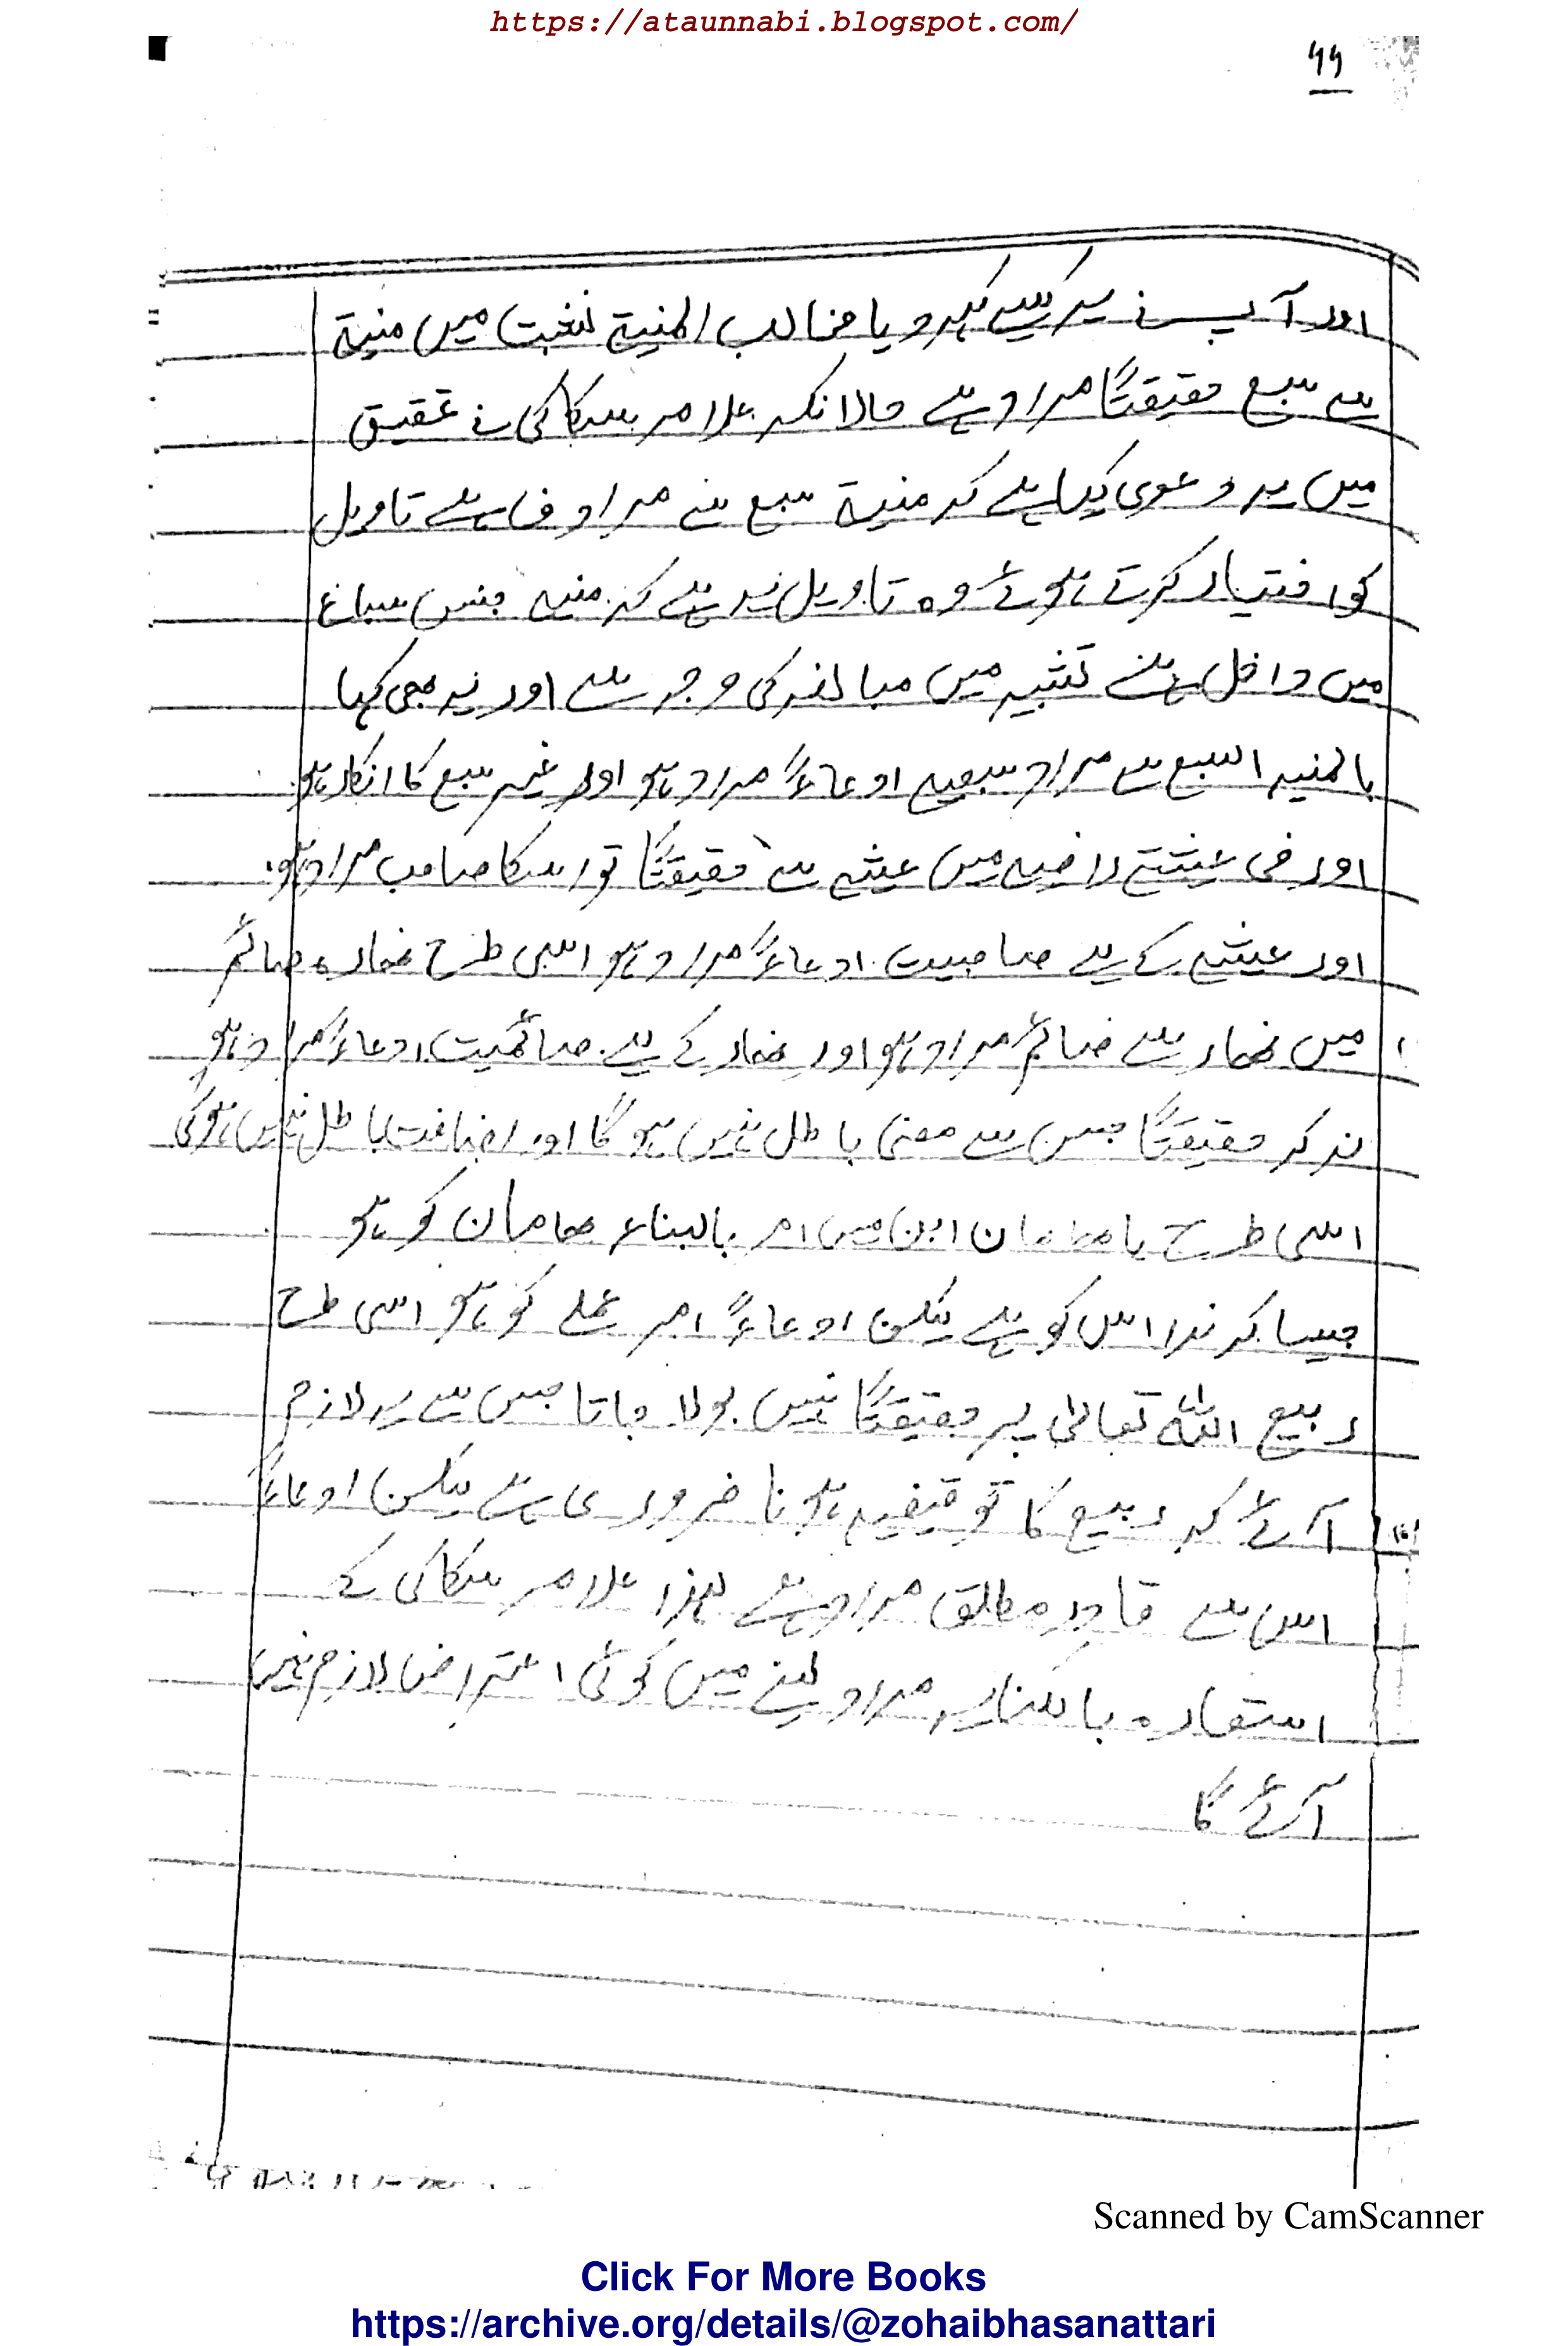 https://ataunnabi.blogspot.com/
۹۹
اور آپ نے یہ کیسے کہہ دیا مخالب المنیۃ نشبت میں منیۃ
سے سبع حقیقتاً مراد ہے حالانکہ علامہ سکاکی نے تحقیق
میں یہ دعوی کیا ہے کہ منیۃ سبع سے مرادف ہے تاویل
کو اختیار کرتے ہوئے وہ تاویل یہ ہے کہ منیہ جنس سباع
میں داخل ہے تشبیہ میں مبالغہ کی وجہ سے اور یہ بھی کہا
بالمنیہ السبع سے مراد سبعیہ ادعاءً مراد ہو اور غیر سبع کا انکار ہو
اور فی عیشۃ راضیہ میں عیشہ سے حقیقتاً تو اسکا صاحب مراد ہو
اور عیشہ کے لیے صاحبیت ادعاءً مراد ہو اسی طرح نھارہ صائم
میں نھار سے صائم مراد ہو اور نھار کے لیے صائمیت ادعاءً مراد ہو
نہ کہ حقیقتاً جس سے معنی باطل نہیں ہو گا اور اضافت باطل نہیں ہوگی
اسی طرح یا ھامان ابن میں امر بالبناء ھامان کو ہو
جیسا کہ ندا اس کو ہے لیکن ادعاءً امر عملے کو ہو اسی طرح
ربیع اللہ تعالیٰ پر حقیقتاً نہیں بولا جاتا جس سے یہ لازم
آئے کہ ربیع کا توقیفیہ ہونا ضروری ہے لیکن ادعاءً
اس سے قادر مطلق مراد ہے لہذا علامہ سکاکی کے
استعارہ بالکنایہ مراد لینے میں کوئی اعتراض لازم نہیں
آئے گا
Scanned by CamScanner
Click For More Books
https://archive.org/details/@zohaibhasanattari